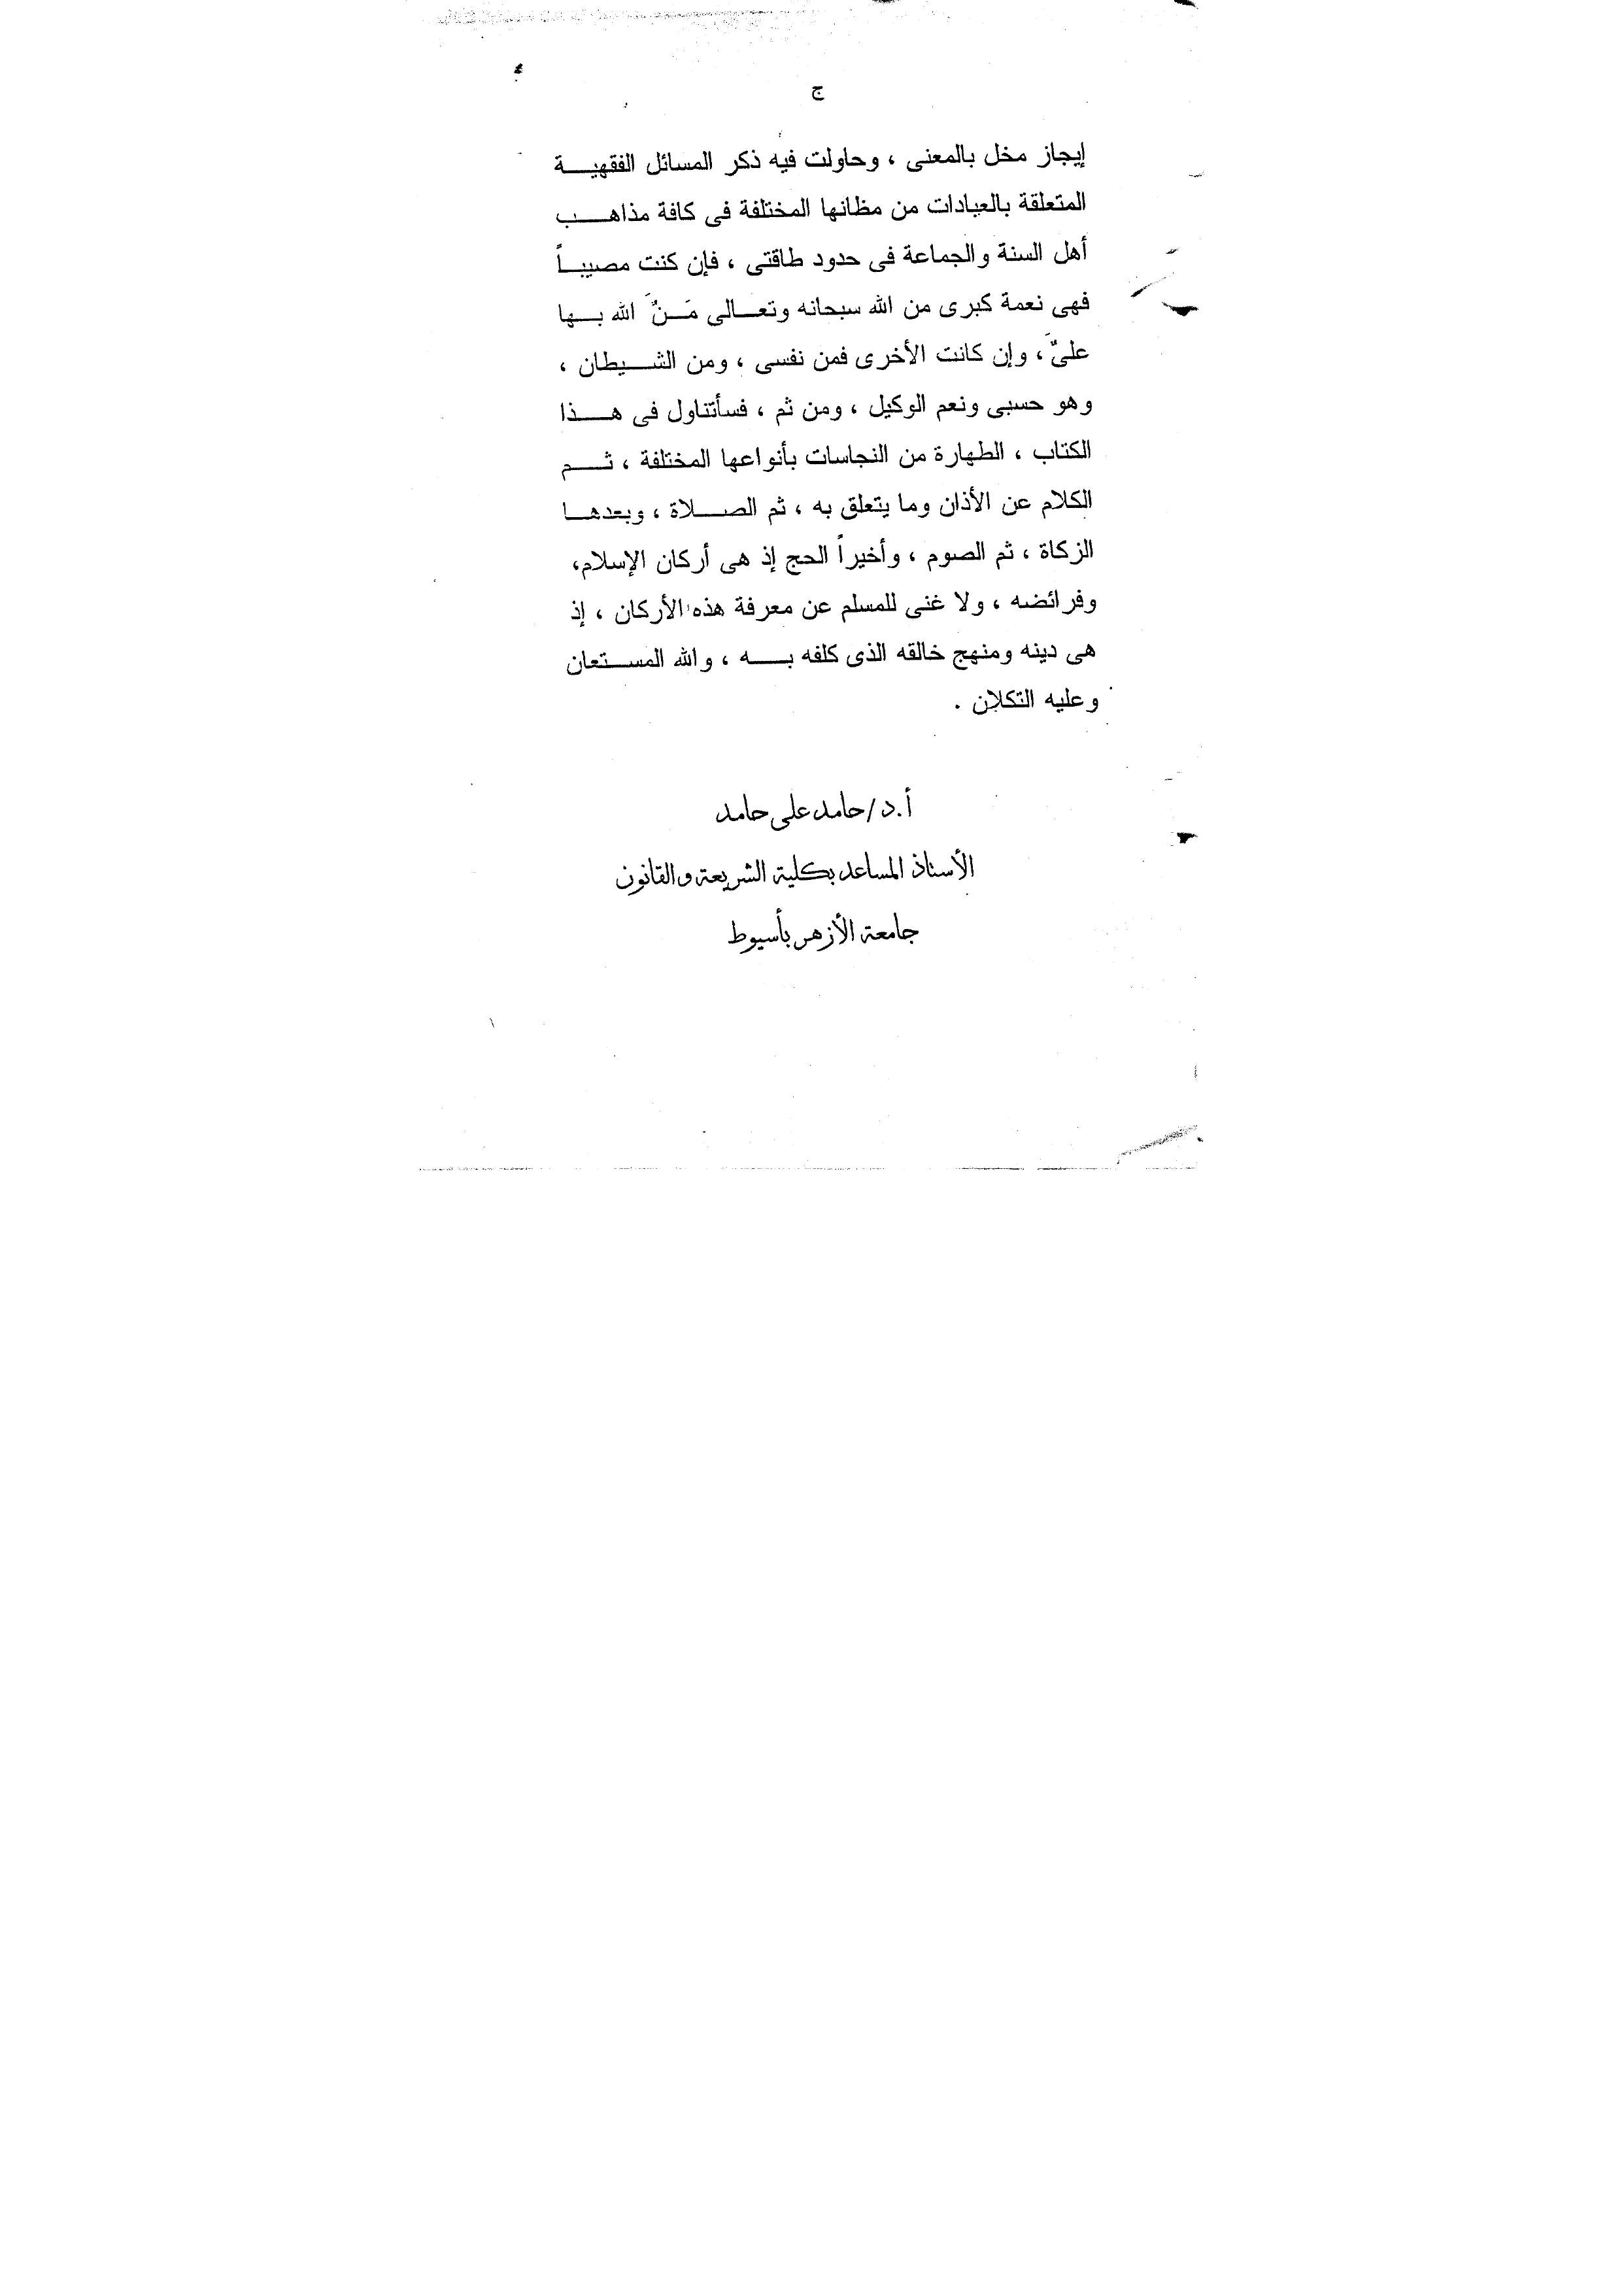 ج
إيجاز مخل بالمعنى ، وحاولت فيه ذكر المسائل الفقهية
المتعلقة بالعبادات من مظانها المختلفة فى كافة مذاهب
أهل السنة والجماعة فى حدود طاقتى ، فإن كنت مصيباً
فهى نعمة كبرى من الله سبحانه وتعالى مَنَّ الله بها
علىَّ ، وإن كانت الأخرى فمن نفسى ، ومن الشيطان ،
وهو حسبى ونعم الوكيل ، ومن ثم ، فسأتناول فى هذا
الكتاب ، الطهارة من النجاسات بأنواعها المختلفة ، ثم
الكلام عن الأذان وما يتعلق به ، ثم الصلاة ، وبعدها
الزكاة ، ثم الصوم ، وأخيراً الحج إذ هى أركان الإسلام،
وفرائضه ، ولا غنى للمسلم عن معرفة هذه الأركان ، إذ
هى دينه ومنهج خالقه الذى كلفه به ، والله المستعان
وعليه التكلان .
أ.د/حامد على حامد
الأستاذ المساعد بكلية الشريعة والقانون
جامعة الأزهر بأسيوط